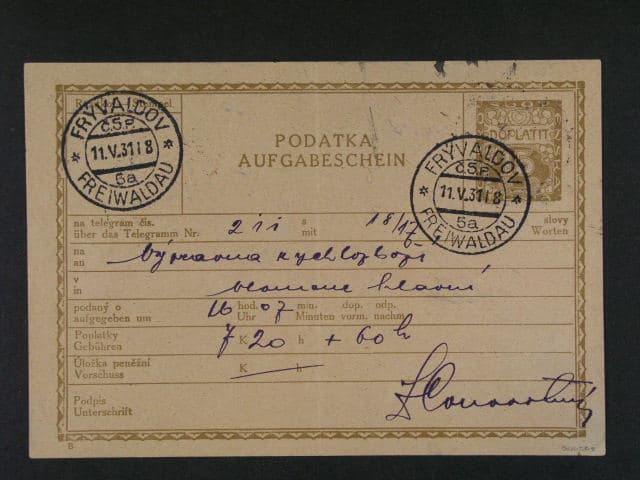 FRÝVALDOV
Č.S.P.
11.V.31 18
5a
FREIWALDAU
PODATKA
AUFGABESCHEIN
DOPLATIT
FRÝVALDOV
Č.S.P.
11.V.31 18
5a
FREIWALDAU
na telegram čís. 211 s 18/17 slovy
über das Telegramm Nr. mit Worten
na
an
v Olomouc hlavní
in
podaný o 16 hod. 07 min. dop. odp.
aufgegeben um Uhr Minuten vorm. nachm.
Poplatky 7 K 20 h + 60 h
Gebühren
Úložka peněžní K h
Vorschuss
Podpis
Unterschrift
B